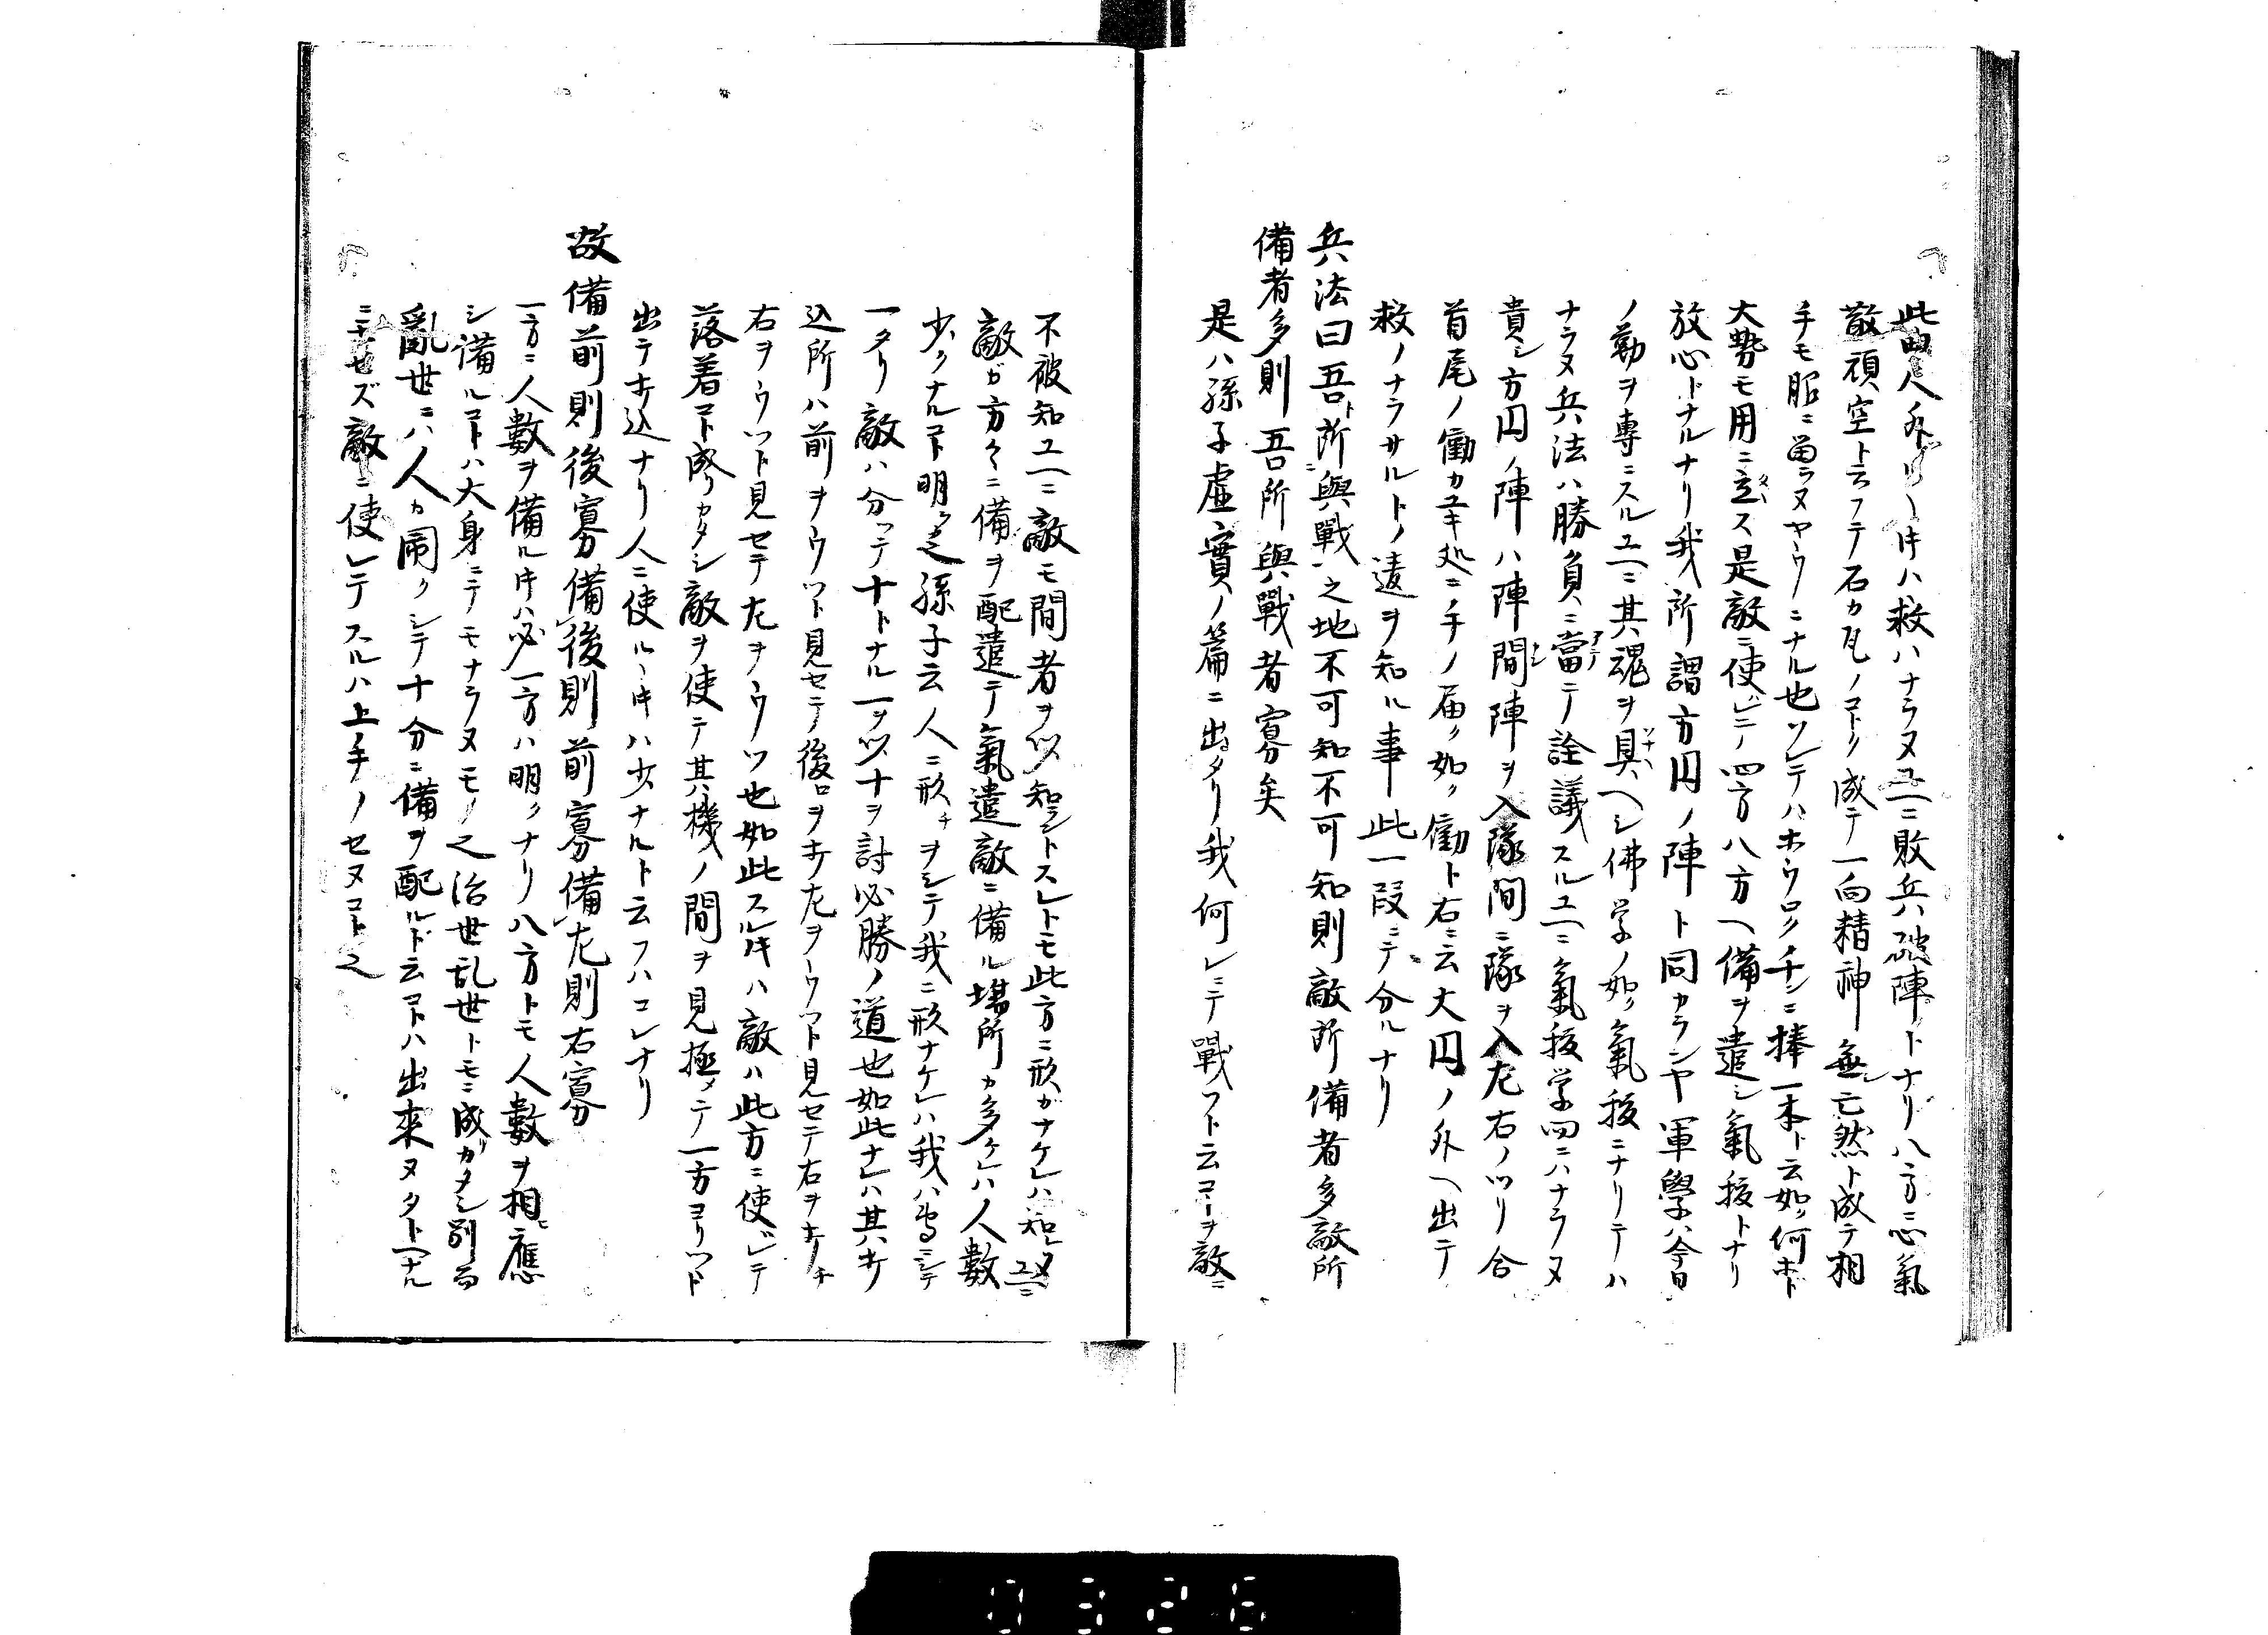 此人ハ救ハナラヌユヘニ敗兵破陣トナリ八方ニ心氣
散頑空ト云フテ石カ瓦ノコトク成テ一向精神無亡然ト成テ相
手モ眼ニ留ラヌヤウニナル也ソレテハホウロク千ニ捧一本ト云如何ホト
大勢モ用ニ立ス是敵ニ使ハレテノ四方八方ヘ備ヲ遣シ氣扱トナリ
放心トナルナリ我所謂方円ノ陣ト同カランヤ軍學ハ今日
ノ勤ヲ專ニスルユヘニ其魂ヲ具ヘシ佛学ノ如ク氣扱ニナリテハ
ナラヌ兵法ハ勝負ニ當テ詮議スルユヘニ氣扱学問ニハナラヌ
貴シ方円ノ陣ハ陣間陣ヲ入隊間ニ隊ヲ入左右ノツリ合
首尾ノ働カユキ処ニ手ノ届ク如ク働ト右ニ云大円ノ外ヘ出テ
救ノナラサルトノ違ヲ知ル事此一段ニテ分ルナリ
兵法曰吾所與戰之地不可知不可知則敵所備者多敵所
備者多則吾所與戰者寡矣
是ハ孫子虚實ノ篇ニ出タリ我何レニテ戰フト云コトヲ敵ニ
不被知ユヘニ敵モ間者ヲ以知ントスレトモ此方ニ形カナケレハ知レヌユヘニ
敵ガ方々ニ備ヲ配遣テ氣遣敵ニ備ル場所カ多ケレハ人數
少クナルコト明之孫子云人ニ形チヲシテ我ニ形ナケレハ我ハ專ニシテ
一タリ敵ハ分ツテ十トナル一ヲ以十ヲ討必勝ノ道也如此ナレハ其キ
込所ハ前ヲウツト見セテ後ロヲキ左ヲウツト見セテ右ヲキチ
右ヲウツト見セテ左ヲウツ也如此スル時ハ敵ハ此方ニ使レテ
落着コト成リカタシ敵ヲ使テ其機ノ間ヲ見極メテ一方ヨリツト
出テキ込ナリ人ニ使ルヽ時ハ少ナルト云フハコレナリ
故備前則後寡備後則前寡備左則右寡
一方ニ人數ヲ備ル時ハ必一方ハ明クナリ八方トモ人數ヲ相應ニ
シ備ルコトハ大身ニテモナラヌモノ之治世乱世トモニ成リガタシ別而
亂世ニハ人カ鬧クシテ十分ニ備ヲ配ルト云コトハ出來ヌ
ニナセズ敵ニ使レテスルハ上手ノセヌコト之